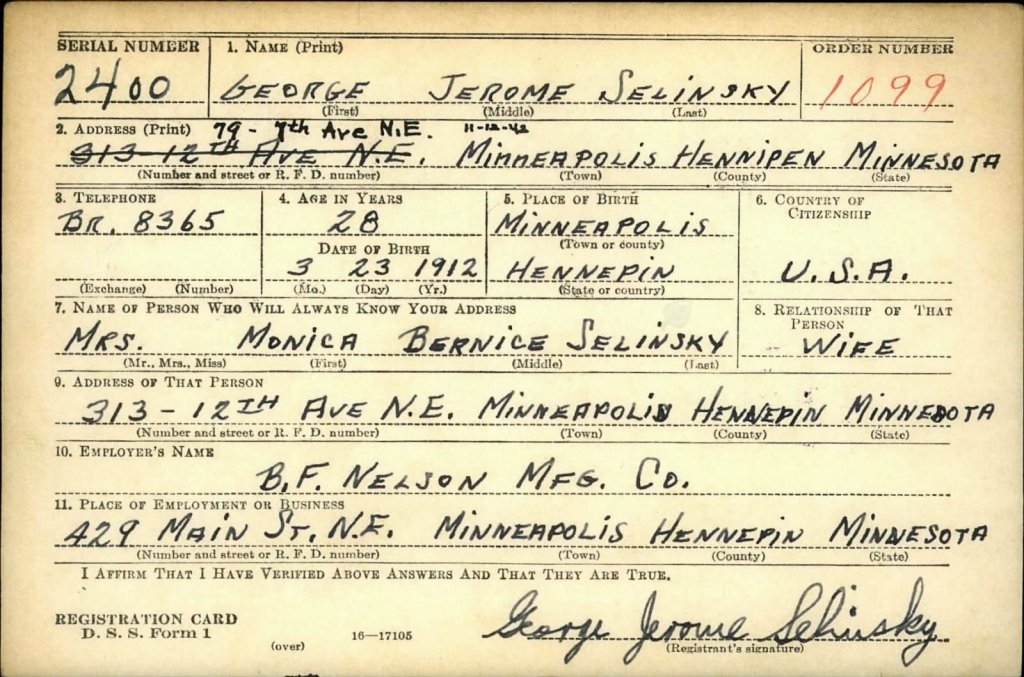 SERIAL NUMBER 1. NAME (Print) ORDER NUMBER
2400 GEORGE JEROME SELINSKY 1099
(First) (Middle) (Last)
2. ADDRESS (Print) 79 - 7th Ave N.E. 11-12-42
313-12TH AVE N.E. MINNEAPOLIS HENNIPEN MINNESOTA
(Number and street or R. F. D. number) (Town) (County) (State)
3. TELEPHONE 4. AGE IN YEARS 5. PLACE OF BIRTH 6. COUNTRY OF
CITIZENSHIP
BR. 8365 28 MINNEAPOLIS
(Town or county)
DATE OF BIRTH
3 23 1912 HENNEPIN U.S.A.
(Exchange) (Number) (Mo.) (Day) (Yr.) (State or country)
7. NAME OF PERSON WHO WILL ALWAYS KNOW YOUR ADDRESS 8. RELATIONSHIP OF THAT
PERSON
MRS. MONICA BERNICE SELINSKY WIFE
(Mr., Mrs., Miss) (First) (Middle) (Last)
9. ADDRESS OF THAT PERSON
313-12TH AVE N.E. MINNEAPOLIS HENNEPIN MINNESOTA
(Number and street or R. F. D. number) (Town) (County) (State)
10. EMPLOYER'S NAME
B.F. NELSON MFG. CO.
11. PLACE OF EMPLOYMENT OR BUSINESS
429 MAIN ST. N.E. MINNEAPOLIS HENNEPIN MINNESOTA
(Number and street or R. F. D. number) (Town) (County) (State)
I AFFIRM THAT I HAVE VERIFIED ABOVE ANSWERS AND THAT THEY ARE TRUE.
REGISTRATION CARD
D. S. S. Form 1 16—17105 George Jerome Selinsky
(over) (Registrant's signature)